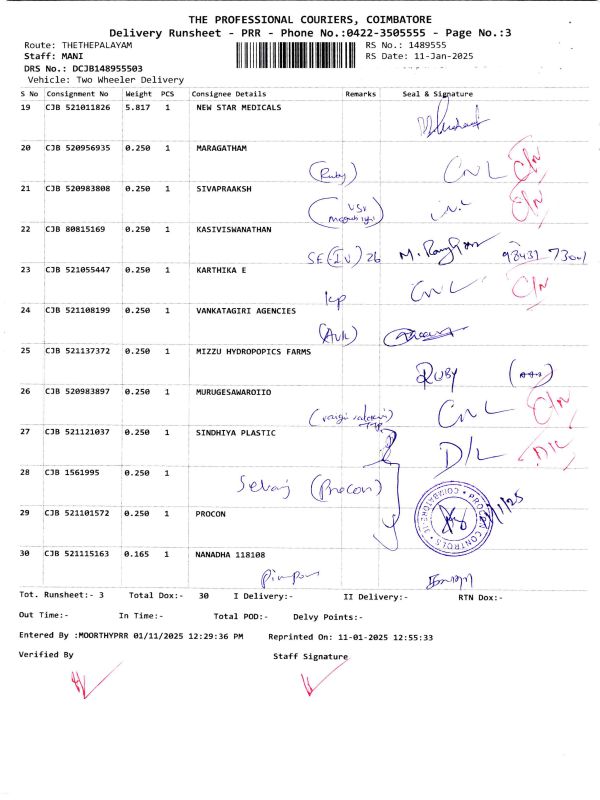 THE PROFESSIONAL COURIERS, COIMBATORE
Delivery Runsheet - PRR - Phone No.:0422-3505555 - Page No.:3
Route: THETHEPALAYAM RS No.: 1489555
Staff: MANI RS Date: 11-Jan-2025
DRS No.: DCJB148955503
Vehicle: Two Wheeler Delivery
S No Consignment No Weight PCS Consignee Details Remarks Seal & Signature
19 CJB 521011826 5.817 1 NEW STAR MEDICALS
20 CJB 520956935 0.250 1 MARAGATHAM
(Ruby) CNL C/N
21 CJB 520983808 0.250 1 SIVAPRAAKSH
C/N
22 CJB 80815169 0.250 1 KASIVISWANATHAN
SE(IV) 26 98431 73001
23 CJB 521055447 0.250 1 KARTHIKA E
CNL C/N
24 CJB 521108199 0.250 1 VANKATAGIRI AGENCIES
25 CJB 521137372 0.250 1 MIZZU HYDROPOPICS FARMS
RUBY
26 CJB 520983897 0.250 1 MURUGESAWAROIIO
CNL C/N
27 CJB 521121037 0.250 1 SINDHIYA PLASTIC
D/L D/L
28 CJB 1561995 0.250 1
Selvaj (Procon)
29 CJB 521101572 0.250 1 PROCON
PROCON CONTROLS
30 CJB 521115163 0.165 1 NANADHA 118108
Tot. Runsheet:- 3 Total Dox:- 30 I Delivery:- II Delivery:- RTN Dox:-
Out Time:- In Time:- Total POD:- Delvy Points:-
Entered By :MOORTHYPRR 01/11/2025 12:29:36 PM Reprinted On: 11-01-2025 12:55:33
Verified By Staff Signature